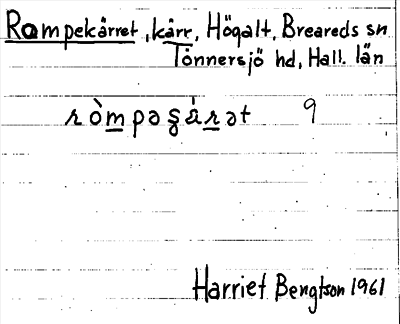 Rampekärret, kärr, Högalt, Breareds sn
Tönnersjö hd, Hall. län
ròmpəʂä̀rət 9
Harriet Bengtson 1961